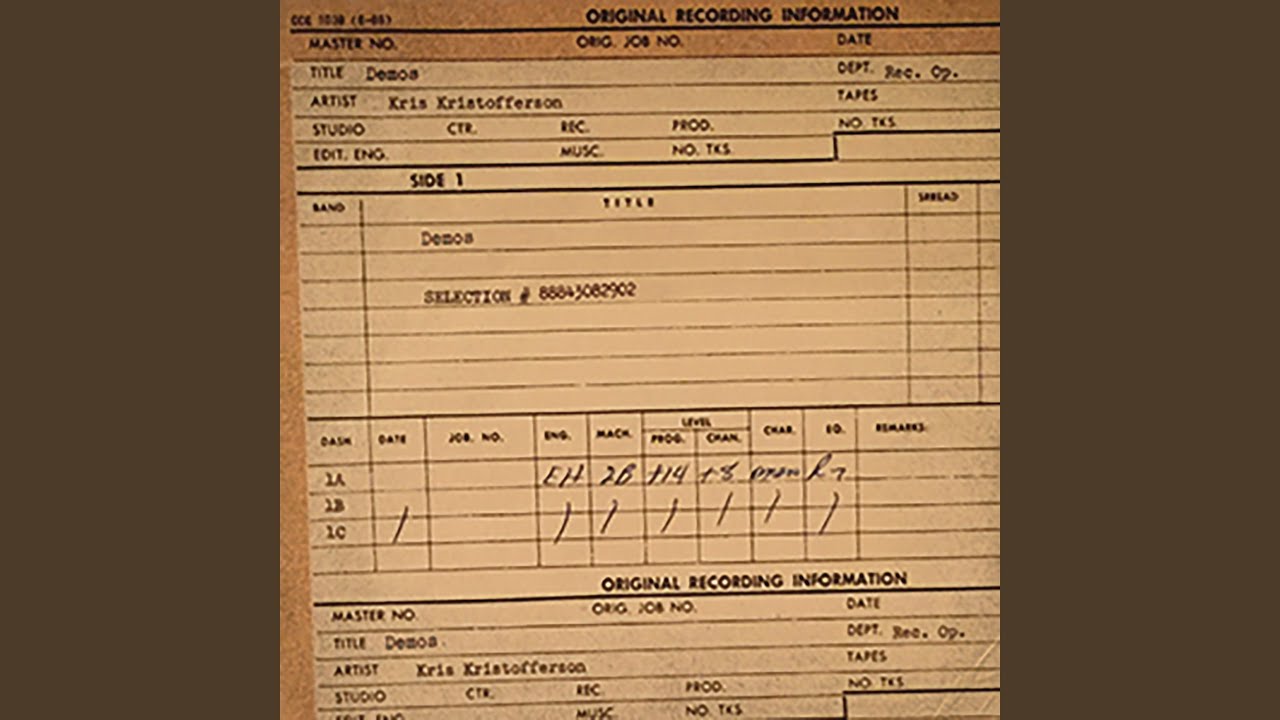 CCE 103B (6-65) ORIGINAL RECORDING INFORMATION
MASTER NO. ORIG. JOB NO. DATE
TITLE Demos DEPT. Rec. Op.
ARTIST Kris Kristofferson TAPES
STUDIO CTR. REC. PROD. NO. TKS.
EDIT. ENG. MUSC. NO. TKS.
SIDE 1
BAND TITLE SPREAD
Demos
SELECTION # 88843082902
LEVEL
DASH DATE JOB. NO. ENG. MACH. PROG. CHAN. CHAR. EQ. REMARKS:
1A EH 2B +14 +8
1B
1C / / / / / / /
ORIGINAL RECORDING INFORMATION
MASTER NO. ORIG. JOB NO. DATE
TITLE Demos DEPT. Rec. Op.
ARTIST Kris Kristofferson TAPES
STUDIO CTR. REC. PROD. NO. TKS.
EDIT. ENG. MUSC. NO. TKS.